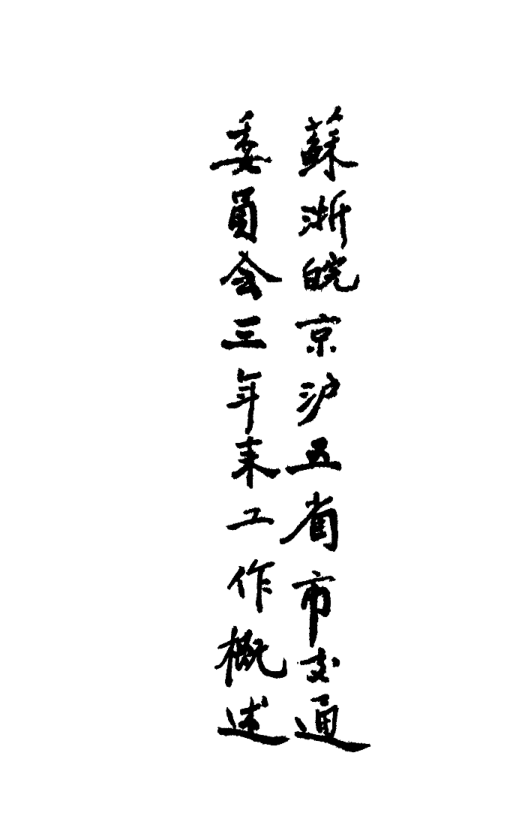 蘇浙皖京沪五省市交通
委員会三年来工作概述